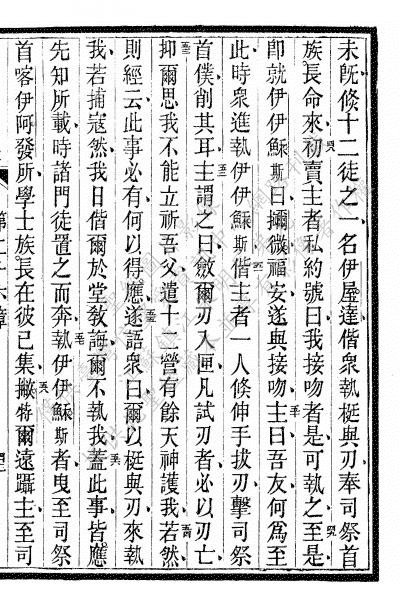 未旣倐十二徒之一名伊屋達偕衆執梃與刃奉司祭首
族長命來初賣主者私約號曰我接吻者是可執之至是
卽就伊伊穌斯曰攡微福安遂與接吻主曰吾友何爲至
此時衆進執伊伊穌斯偕主者一人倐伸手拔刃擊司祭
首僕削其耳主謂之曰斂爾刃入匣凡試刃者必以刃亡
抑爾思我不能立祈吾父遣十二營有餘天神護我若然
則經云此事必有何以得應遂語衆曰爾以梃與刃來執
我若捕寇然我日偕爾於堂敎誨爾不執我蓋此事皆應
先知所載時諸門徒置之而奔執伊伊穌斯者曳至司祭
首喀伊阿發所學士族長在彼已集撇特爾遠躡主至司